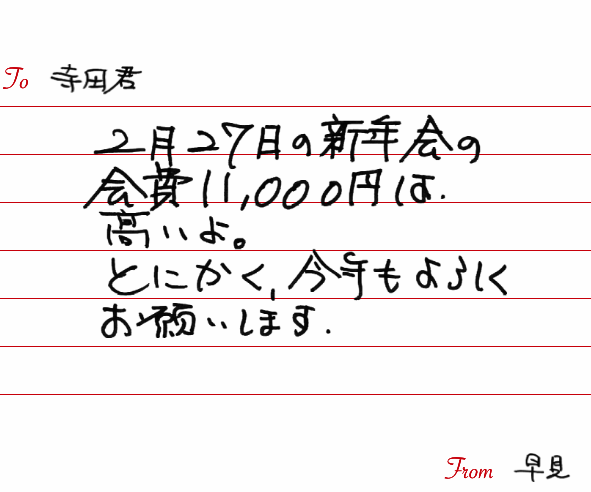 To 寺田君
2月27日の新年会の
会費11,000円は.
高いよ。
とにかく,今年もよろしく
お願いします.
From 早見